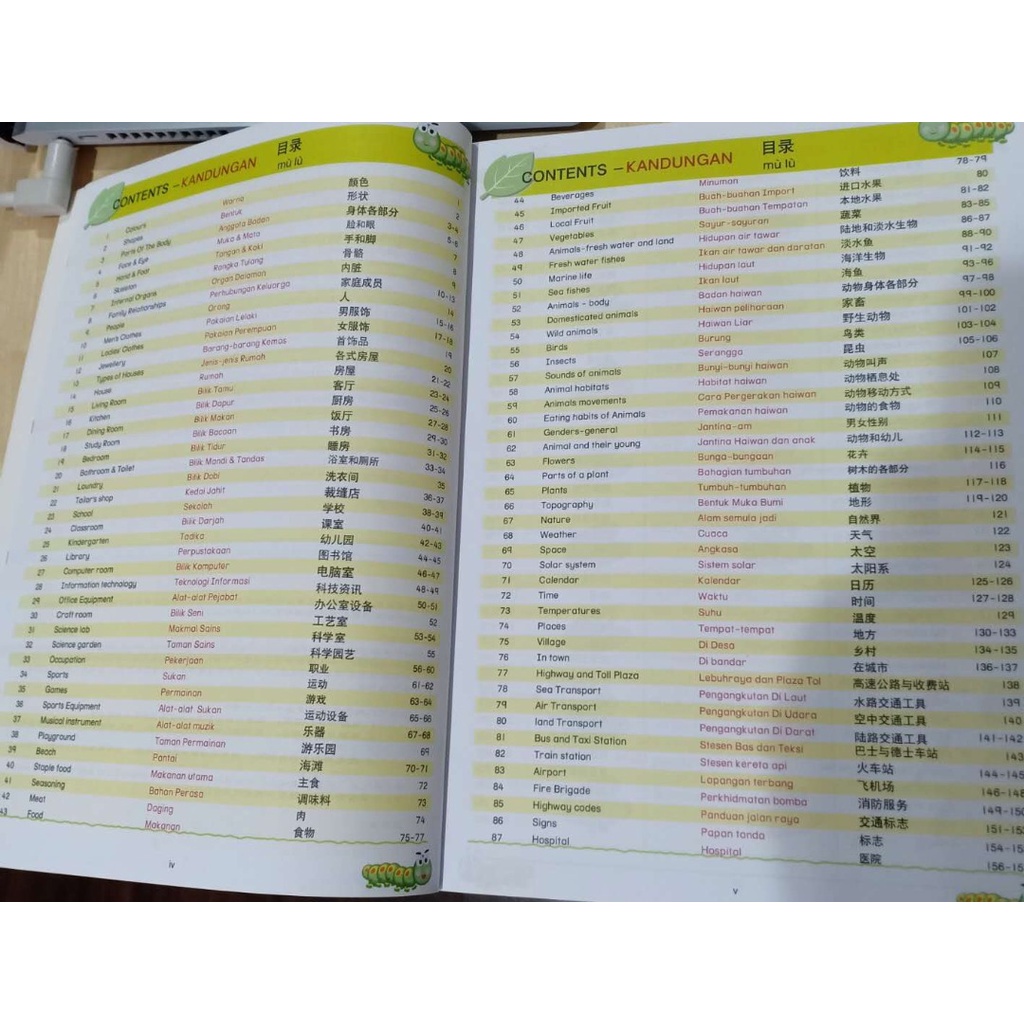 CONTENTS – KANDUNGAN 目录
mù lù
1 Colours Warna 颜色 1
2 Shapes Bentuk 形状 2
3 Parts Of The Body Anggota Badan 身体各部分 3-4
4 Face & Eye Muka & Mata 脸和眼 5-6
5 Hand & Foot Tangan & Kaki 手和脚 7
6 Skeleton Rangka Tulang 骨骼 8
7 Internal Organs Organ Dalaman 内脏 9
8 Family Relationships Perhubungan Keluarga 家庭成员 10-13
9 People Orang 人 14
10 Men's Clothes Pakaian Lelaki 男服饰 15-16
11 Ladies' Clothes Pakaian Perempuan 女服饰 17-18
12 Jewellery Barang-barang Kemas 首饰品 19
13 Types of Houses Jenis-jenis Rumah 各式房屋 20
14 House Rumah 房屋 21-22
15 Living Room Bilik Tamu 客厅 23-24
16 Kitchen Bilik Dapur 厨房 25-26
17 Dining Room Bilik Makan 饭厅 27-28
18 Study Room Bilik Bacaan 书房 29-30
19 Bedroom Bilik Tidur 睡房 31-32
20 Bathroom & Toilet Bilik Mandi & Tandas 浴室和厕所 33-34
21 Laundry Bilik Dobi 洗衣间 35
22 Tailor's shop Kedai Jahit 裁缝店 36-37
23 School Sekolah 学校 38-39
24 Classroom Bilik Darjah 课室 40-41
25 Kindergarten Tadika 幼儿园 42-43
26 Library Perpustakaan 图书馆 44-45
27 Computer room Bilik Komputer 电脑室 46-47
28 Information technology Teknologi Informasi 科技资讯 48-49
29 Office Equipment Alat-alat Pejabat 办公室设备 50-51
30 Craft room Bilik Seni 工艺室 52
31 Science lab Makmal Sains 科学室 53-54
32 Science garden Taman Sains 科学园艺 55
33 Occupation Pekerjaan 职业 56-60
34 Sports Sukan 运动 61-62
35 Games Permainan 游戏 63-64
36 Sports Equipment Alat-alat Sukan 运动设备 65-66
37 Musical instrument Alat-alat muzik 乐器 67-68
38 Playground Taman Permainan 游乐园 69
39 Beach Pantai 海滩 70-71
40 Staple food Makanan utama 主食 72
41 Seasoning Bahan Perasa 调味料 73
42 Meat Daging 肉 74
43 Food Makanan 食物 75-77
iv
CONTENTS – KANDUNGAN 目录
mù lù
44 Beverages Minuman 饮料 78-79
45 Imported Fruit Buah-buahan Import 进口水果 80
46 Local Fruit Buah-buahan Tempatan 本地水果 81-82
47 Vegetables Sayur-sayuran 蔬菜 83-85
48 Animals-fresh water and land Hidupan air tawar 陆地和淡水生物 86-87
49 Fresh water fishes Ikan air tawar dan daratan 淡水鱼 88-90
50 Marine life Hidupan laut 海洋生物 91-92
51 Sea fishes Ikan laut 海鱼 93-96
52 Animals - body Badan haiwan 动物身体各部分 97-98
53 Domesticated animals Haiwan peliharaan 家畜 99-100
54 Wild animals Haiwan Liar 野生动物 101-102
55 Birds Burung 鸟类 103-104
56 Insects Serangga 昆虫 105-106
57 Sounds of animals Bunyi-bunyi haiwan 动物叫声 107
58 Animal habitats Habitat haiwan 动物栖息处 108
59 Animals movements Cara Pergerakan haiwan 动物移动方式 109
60 Eating habits of Animals Pemakanan haiwan 动物的食物 110
61 Genders-general Jantina-am 男女性别 111
62 Animal and their young Jantina Haiwan dan anak 动物和幼儿 112-113
63 Flowers Bunga-bungaan 花卉 114-115
64 Parts of a plant Bahagian tumbuhan 树木的各部分 116
65 Plants Tumbuh-tumbuhan 植物 117-118
66 Topography Bentuk Muka Bumi 地形 119-120
67 Nature Alam semula jadi 自然界 121
68 Weather Cuaca 天气 122
69 Space Angkasa 太空 123
70 Solar system Sistem solar 太阳系 124
71 Calendar Kalendar 日历 125-126
72 Time Waktu 时间 127-128
73 Temperatures Suhu 温度 129
74 Places Tempat-tempat 地方 130-133
75 Village Di Desa 乡村 134-135
76 In town Di bandar 在城市 136-137
77 Highway and Toll Plaza Lebuhraya dan Plaza Tol 高速公路与收费站 138
78 Sea Transport Pengangkutan Di Laut 水路交通工具 139
79 Air Transport Pengangkutan Di Udara 空中交通工具 140
80 land Transport Pengangkutan Di Darat 陆路交通工具 141-142
81 Bus and Taxi Station Stesen Bas dan Teksi 巴士与德士车站 143
82 Train station Stesen kereta api 火车站 144-145
83 Airport Lapangan terbang 飞机场 146-148
84 Fire Brigade Perkhidmatan bomba 消防服务 149-150
85 Highway codes Panduan jalan raya 交通标志 151-153
86 Signs Papan tanda 标志 154-15
87 Hospital Hospital 医院 156-15
v